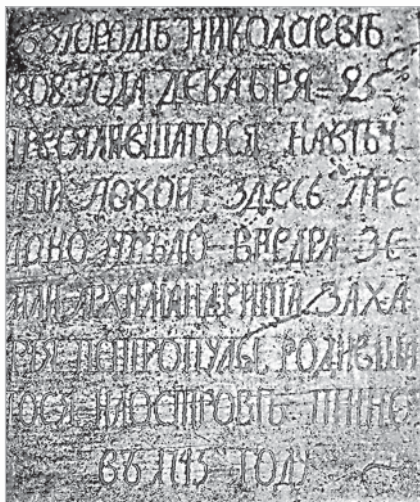 ГОРОДѢ НИКОЛАЕВѢ
1808 ГОДА ДЕКАБРЯ 25
ПРЕСТАВИВШАГОСЯ НАВѢЧ
НЫЙ ПОКОЙ ЗДЕСЬ ПРЕ
ДОНО ТѢЛО ВНЕДРА ЗЕ
МЛИ АРХИМАНДРИТА ЗАХА
РЬЯ ПЕТРОПУЛЫ РОДИВШИ
ГОСЯ НАОСТРОВѢ ТИНЕ
ВЪ 1743 ГОДУ